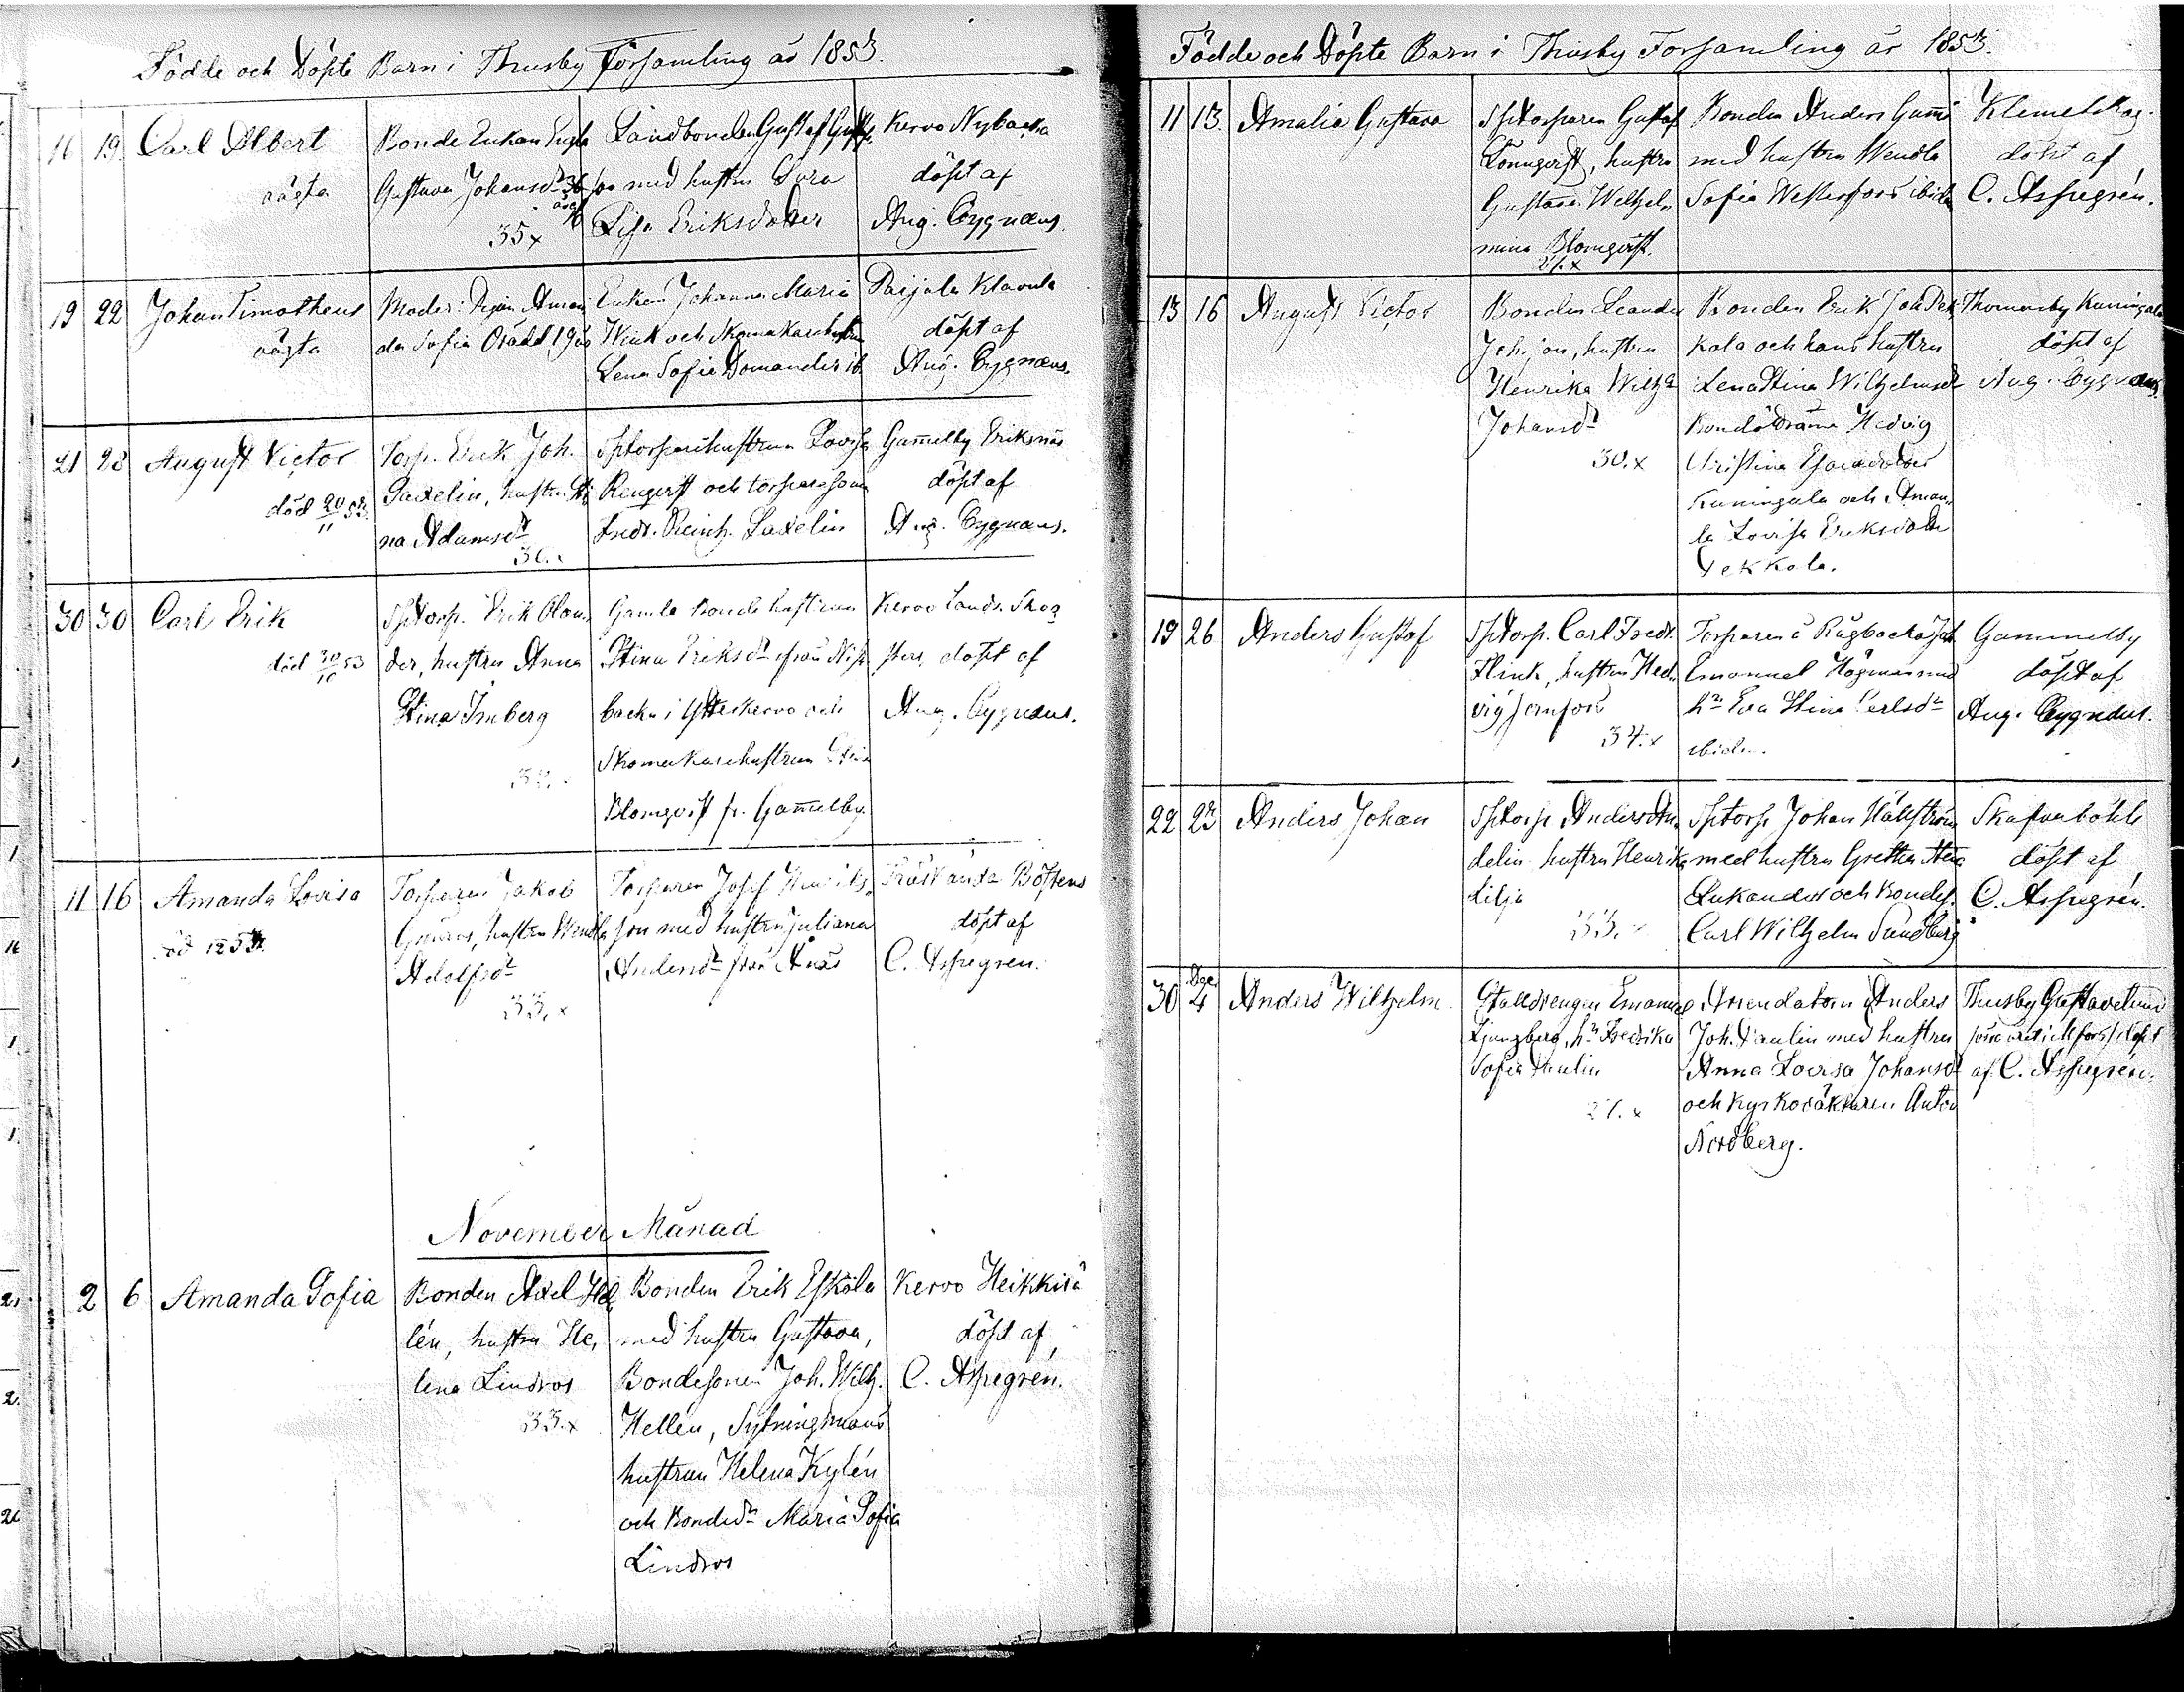 Födde och Döpte Barn i Thusby Församling år 1853.
16 19 Carl Albert
oägta
Bonde Enkan
Gustava Johansdr 36
35 x
Landbonden Gustaf
son med hustru
Lisa Eriksdotter
Kervo Nybacka
döpt af
Aug. Cygnæus.
19 22 Johan Timotheus
oägta
Moder: Pigan Aman
da Sofia
Enkan Johanna Maria
Wink och Skomakarehustrun
Lena Sofia Domander ib.
Paijala Klavula
döpt af
Aug. Cygnæus.
21 23 August Victor
död 20/11 53.
Torp. Erik Joh.
Saxelin, hustru Sti
na Adamsdr
36.x
Sptorparehustrun Lovisa
Rengerst och torparesonen
Fredr. Reinh. Saxelin
Gam̄elby Eriksnäs
döpt af
Aug. Cygnæus.
30 30 Carl Erik
död 30/10 53
Sptorp. Erik Olan
der, hustru Anna
Stina Imberg
Gamla bonde hustrun
Stina Eriksdr från Niss
backa i Ytterkervo och
Skomakarehustrun
Blomqvist fr. Gam̄elby.
Kervo Lands. Skog
döpt af
Aug. Cygnæus.
11 16 Amanda Lovisa
Torparen Jakob
hustru Wendla
Adolfsdr
33. x
Torparen Josef
son med hustru Juliana
Andersdr från Ånäs
Träskända Böstens
döpt af
C. Aspegren.
November Månad
2 6 Amanda Sofia
Bonden Axel Hel
lén, hustru He,
lena Lindros
33.x
Bonden Erik Eskola
med hustru Gustava,
Bondesonen Joh. Wilh.
Hellén, Sytningsmans
hustrun Helena Kylén
och Bondedr Maria Sofia
Lindros
Kervo Heikkilä
döpt af
C. Aspegrén.
Födde och Döpte Barn i Thusby Forsamling år 1853.
11 13. Amalia Gustava
Sptorparen Gustaf
Lönnqvist, hustru
Gustava Wilhel
mina Blomqvist.
27.x
Bonden Anders
med hustru Wendla
Sofia Westerfors ibidem
Klemetskog.
döpt af
C. Aspegrén.
13 16 August Victor
Bonden Leander
Johsson, hustru
Henrika Wilha
Johansdr
30.x
Bonden Erik Joh Dek
kala och hans hustru
Lena Stina Wilhelmsdr
Bondedrarne Hedvig
Christina Esaiedotter
Kuningala och Aman
da Lovisa Eriksdotter
Dekkala.
Thomasby Kuningala
döpt af
Aug. Cygnæus.
19 26 Anders Gustaf
Sptorp. Carl Fredr.
Flink, hustru Hed
vig Jernfors
34.x
Torparen å Rågbacka Joh
Emanuel Högman med
hu Eva Stina Carlsdr
ibidem.
Gammelby
döpt af
Aug. Cygnæus.
22 23 Anders Johan
Sptorp Anders An
delin hustru Henrika
Lilja
33. x
Sptorp Johan Hällström
med hustru Gretha Stina
Lukander och Bondes.
Carl Wilhelm Sundberg
Skafvaböhle
döpt af
C. Aspegrén.
Dec.
30 4 Anders Wilhelm.
Stalldrengen Emanuel
Ljungberg, hu Fredrika
Sofia Paulin
27. x
Arrendatorn Anders
Joh. Paulin med hustru
Anna Lovisa Johansdr
och Kyrkoväktaren Anton
Nordberg.
Thusby Gustavelund
döpt
af C. Aspegrén.